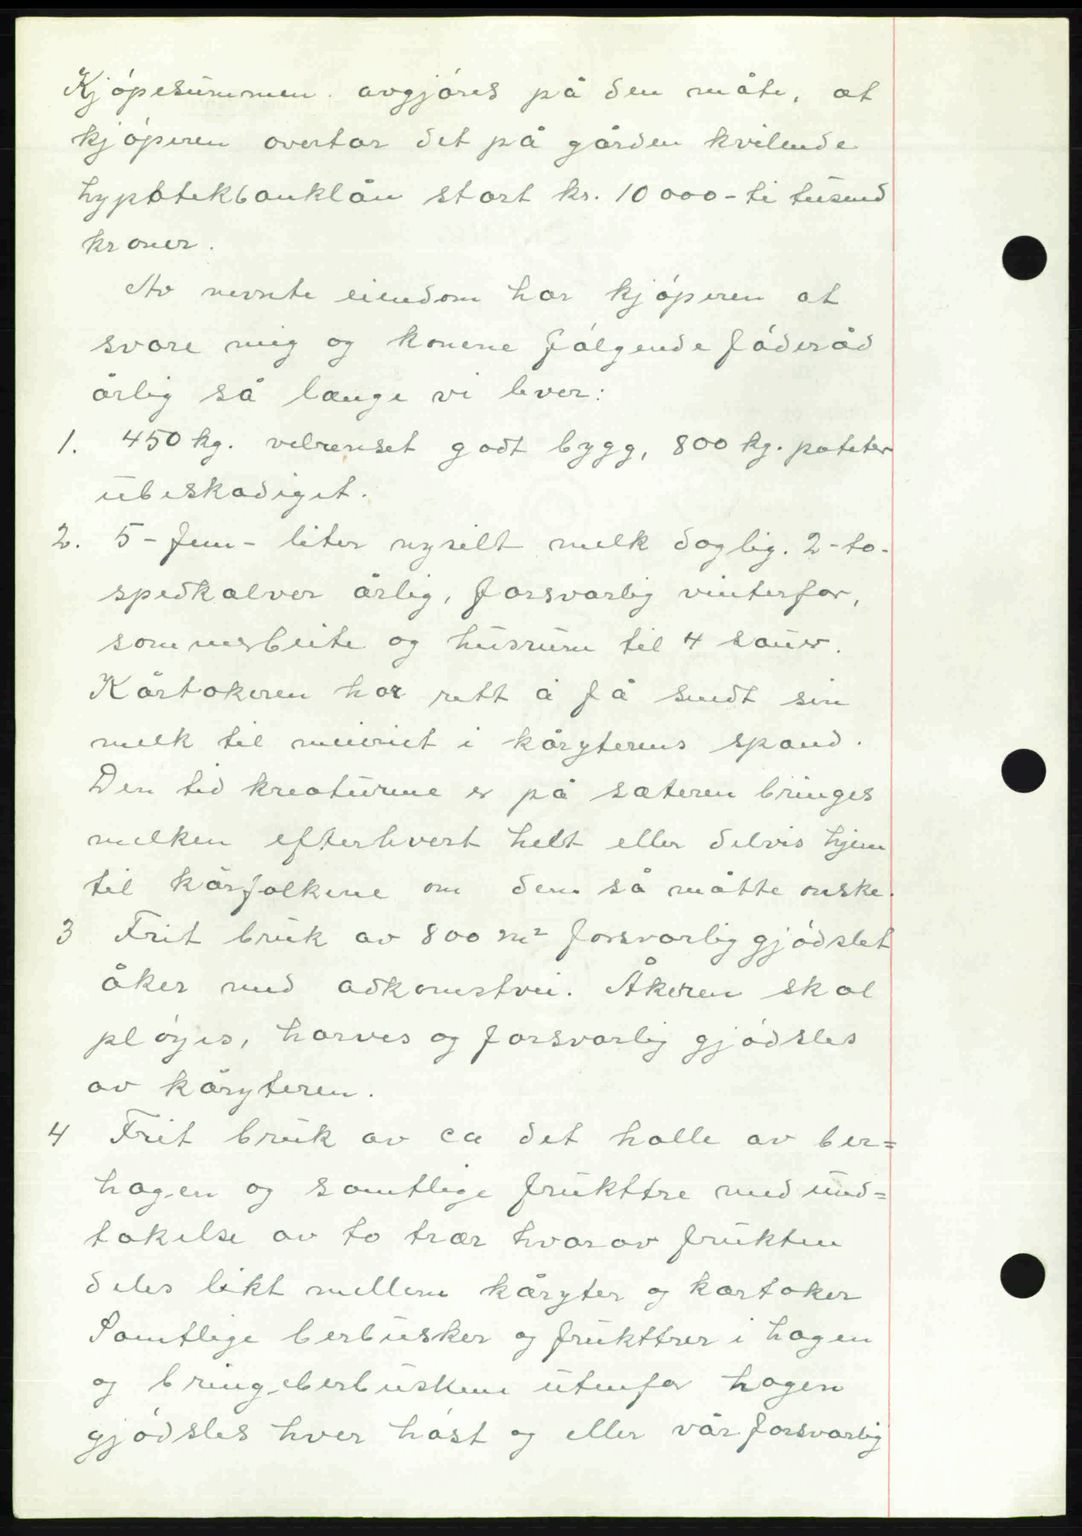 Kjópesummen avgjóres på den måte, at
kjóperen overtar det på gården kvilende
hypotekbanklån stort kr. 10 000 - ti tusend
kroner.
Av nevnte eiendom har kjóperen at
svare mig og konene fólgende fóderåd
årlig så længe vi lever:
1. 450 kg. velrenset godt bygg, 800 kg. poteter
ubeskadiget.
2. 5 - fem - liter nysilt melk daglig. 2 - to -
spedkalver årlig, forsvarlig vinterfor,
sommerbeite og husrum til 4 sauer.
Kårtakeren har rett å få sendt sin
melk til meieriet i kåryterens spand.
Den tid kreaturene er på sæteren bringes
melken efterhvert helt eller delvis hjem
til kårfolkene om dem så måtte onske.
3 Frit bruk av 800 m² forsvarlig gjódslet
åker med adkomstvei. Åkeren skal
plóyes, harves og forsvarlig gjódsles
av kåryteren.
4 Frit bruk av ca det halle av ber=
hagen og samtlige frukttre med und=
takelse av to trær hvorav frukten
deles likt mellem kåryter og kartaker
Samtlige berbusker og frukttrer i hagen
og bringeberbuskene utenfor hagen
gjódsles hver hóst og eller vår forsvarlig